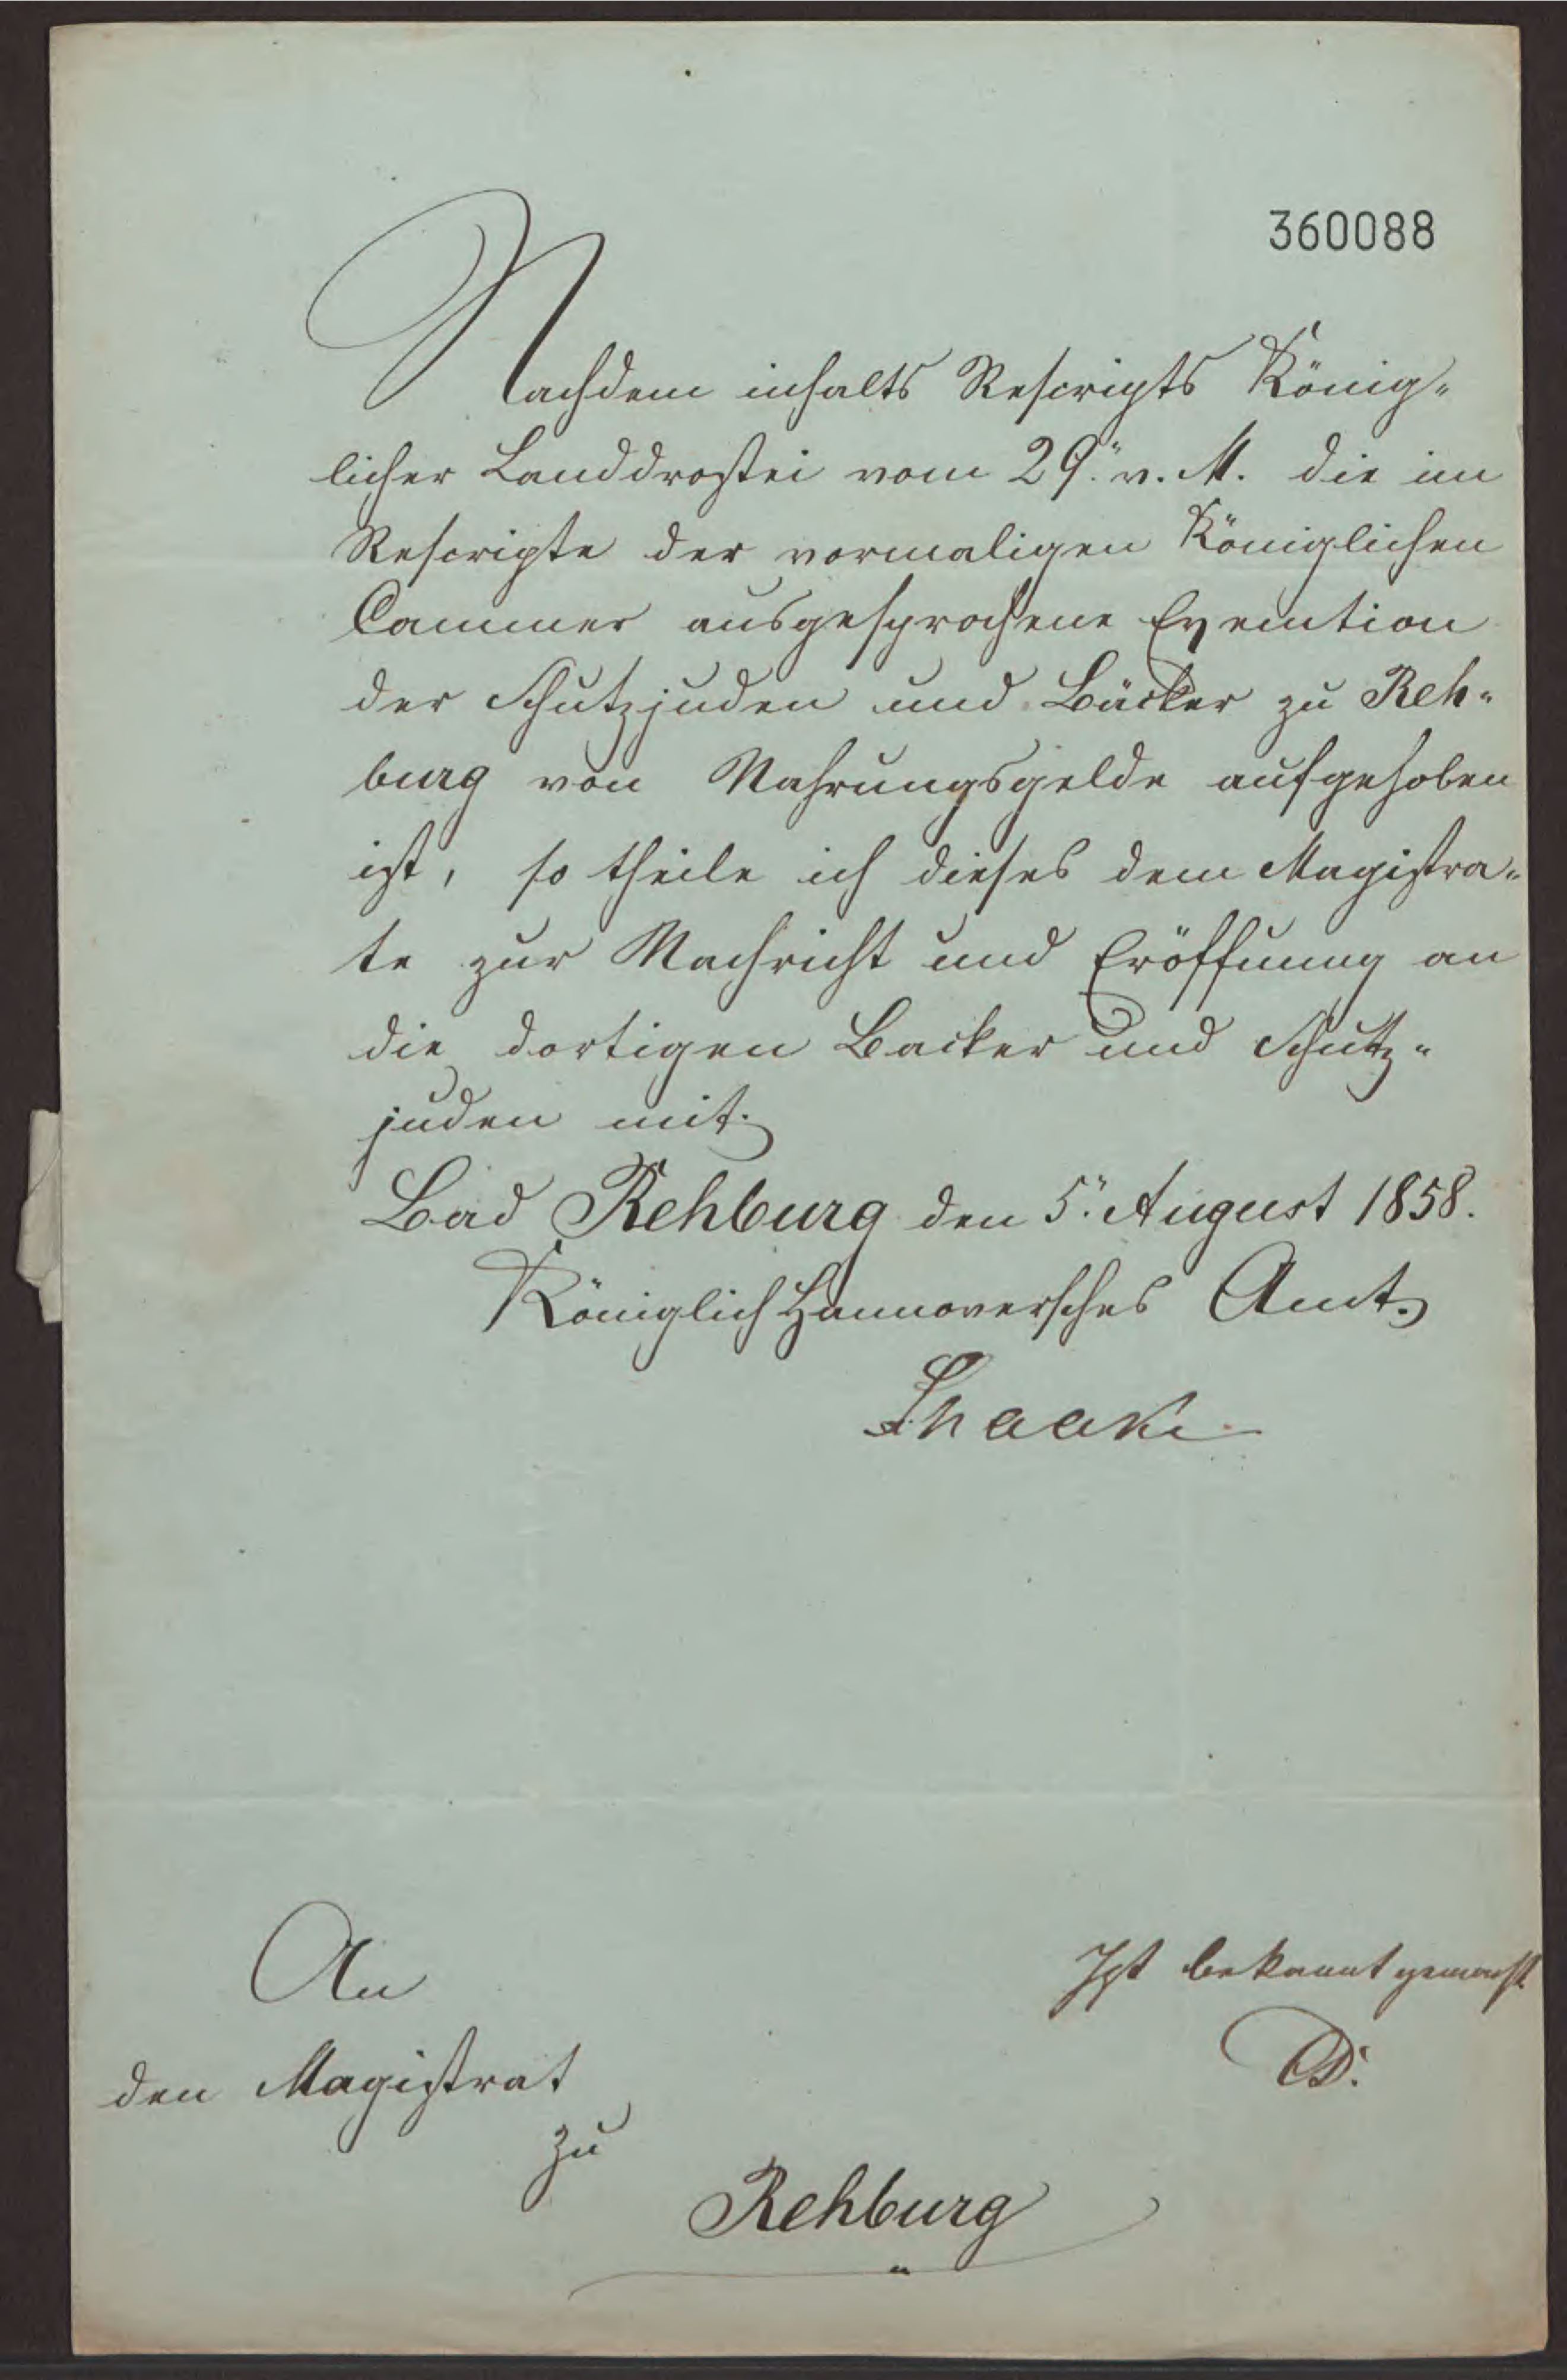 360088
Nachdem inhalts Rescripts König-
licher Landdrostei vom 29. v. M. die im
Rescripte der vormaligen Königlichen
Cammer ausgesprochene Exemtion
der Schutzjuden und Bäcker zu Reh-
burg von Nahrungsgelde aufgehoben
ist, so theile ich dieses dem Magistra-
te zur Nachricht und Eröffnung an
die dortigen Backer und Schutz-
juden mit.
Bad Rehburg den 5. August 1858.
Königlich Hannoversches Amt.
An
den Magistrat
zu
Rehburg
Ist bekannt gemacht
D.